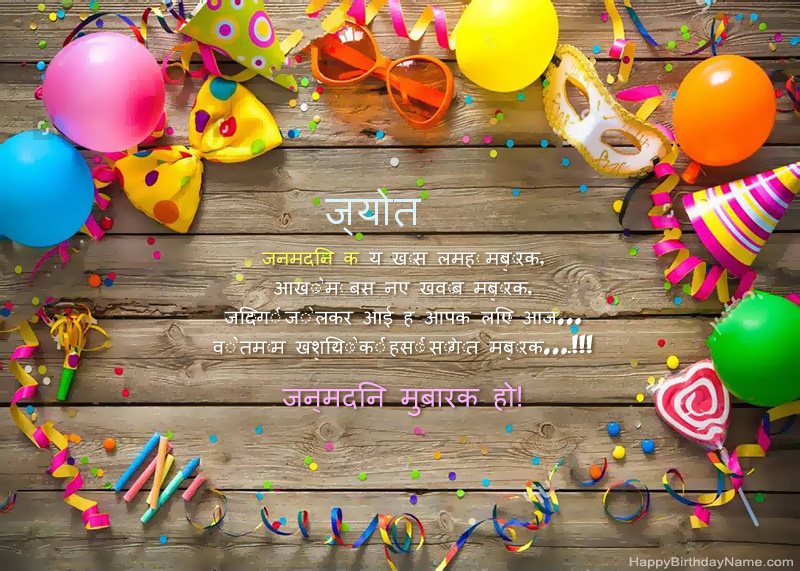 ज्योत
जनमदिन क य खास लमह मबारक,
आखों में बस नए खवाब मबारक,
जिंदगी जो लेकर आई ह आपक लिए आज...
वो तमाम खुशियों की हसी सौगात मबारक....!!!
जन्मदिन मुबारक हो!
HappyBirthdayName.com